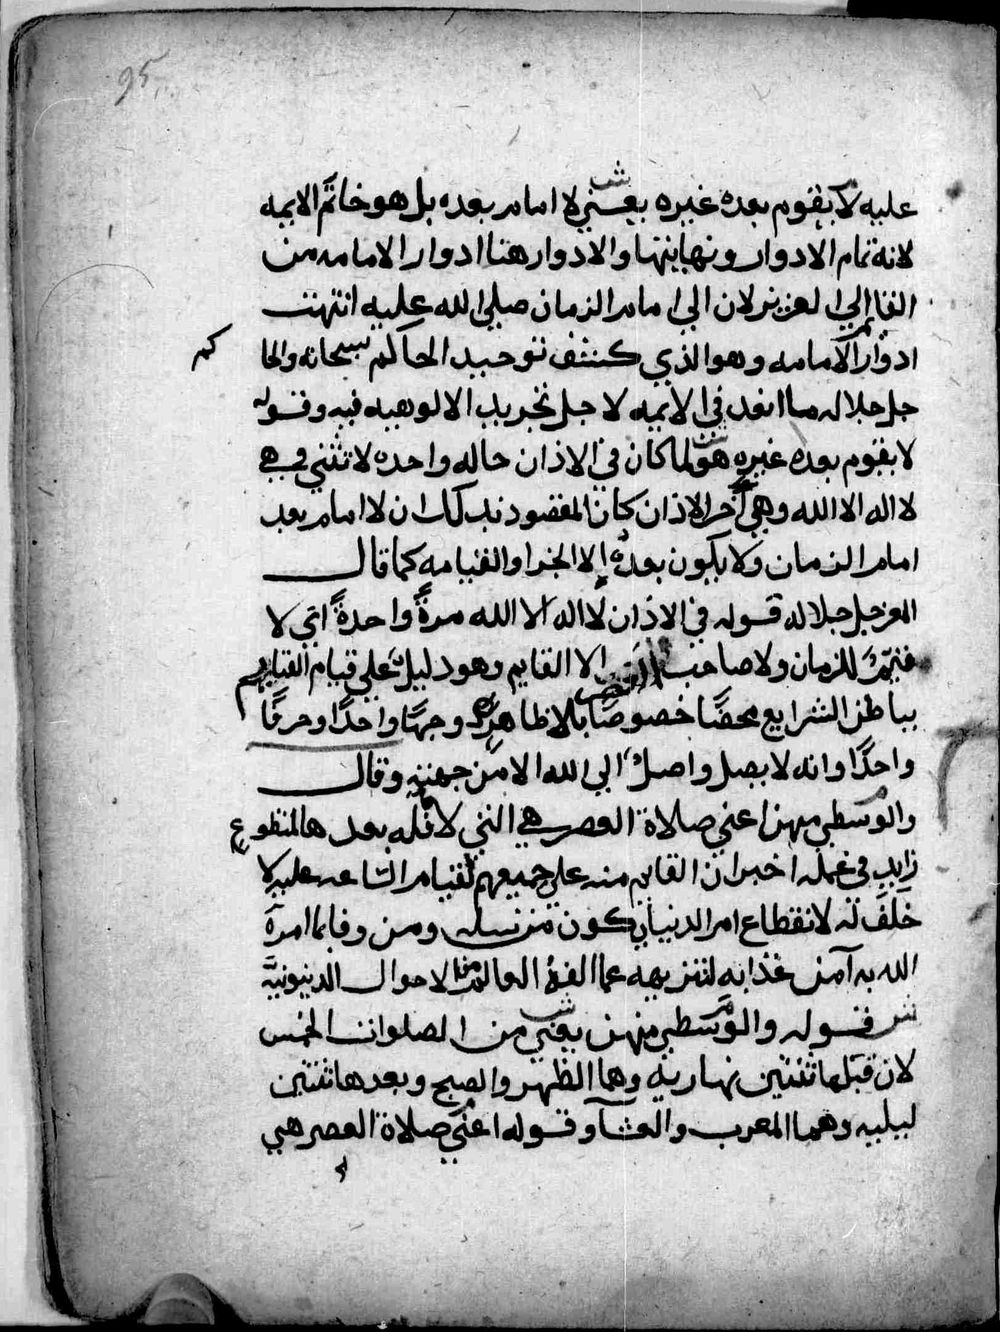 95
عليه لا يقوم بعده غيره يعني لا امام بعده بل هو خاتم الايمه
لانه تمام الادوار ونهايتها والادوار هنا ادوار الامامه من
القايم الى العزيز لان الى امام الزمان صلى الله عليه انتهت
ادوار الامامه وهو الذي كشف توحيد الحاكم سبحانه والحاكم
جل جلاله في الايمه لاجل تجريد الالوهيه فيه وقوله
لا يقوم بعده غيره هو لما كان في الاذان حاله واحده لا تثني وهي
لا اله الا الله وهي آخر الاذان كان المقصود بذلك ان لا امام بعد
امام الزمان ولا يكون بعده الا الجزا والقيامه كما قال
المعز جل جلاله قوله في الاذان لا اله الا الله مرةً واحدةً اي لا
للزمان ولا صاحب الا القايم وهو دليل على قيام القايم
بباطن الشرايع محضًا خصوصًا بلا ظاهر وجهًا واحدًا وحرفًا
واحدًا وانه لا يصل واصل الى الله الا من جهته وقال
والوسطى منهن اعني صلاة العصر هي التي لا نافله بعدها لمتطوع
زايد في عمله اخبر ان القايم منه على جميعهم لقيام الساعه عليه لا
خلف له لانقطاع امر الدنيا يكون من نسله ومن وفا بما امره
الله به آمن عذابه لتنزيهه عما الفه العالم من الاحوال الدنيونيَّة
ش قوله والوسطى منهن يعني من الصلوات الخمس
لان قبلها ثنتين نهاريه وهما الظهر والصبح وبعدها ثنتين
ليليه وهما المغرب والعشا وقوله اعني صلاة العصر هي